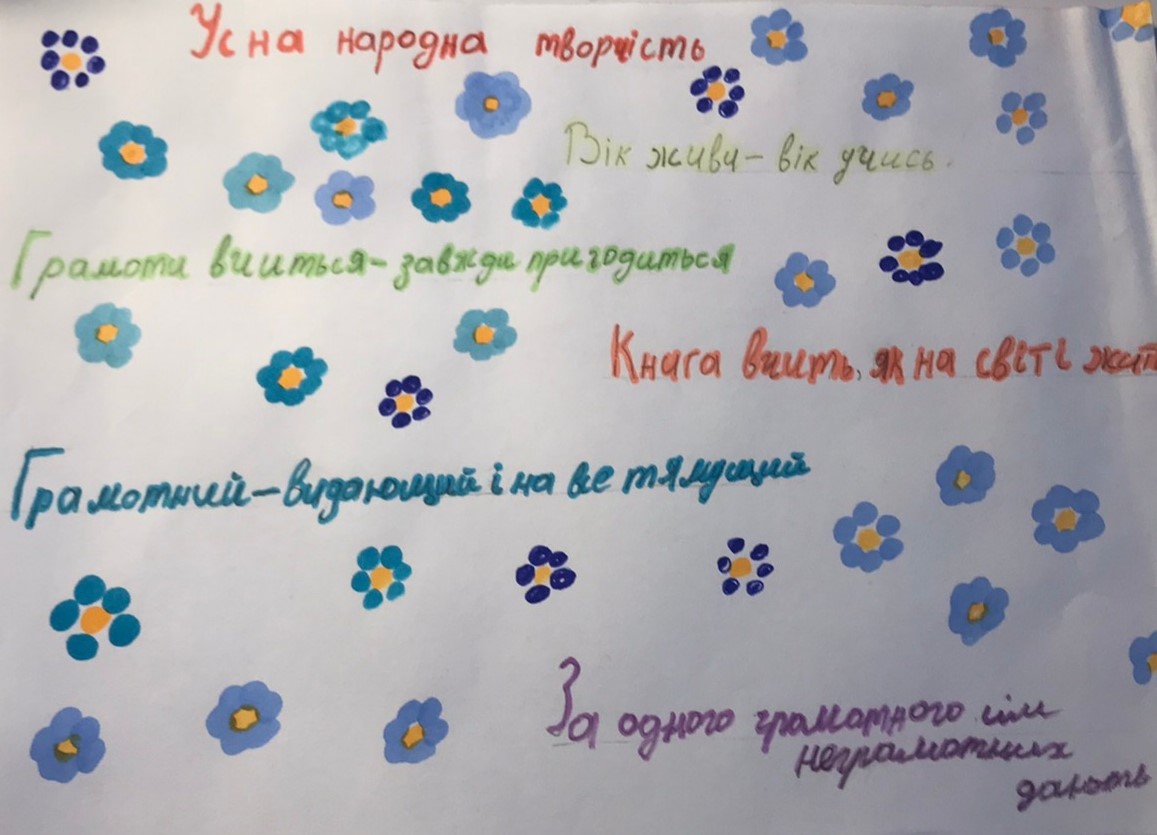 Усна народна творчість
Вік живи – вік учись.
Грамоти вчиться – завжди пригодиться
Книга вчить, як на світі жит
Грамотний – видающий і на все тямущий
За одного грамотного сім
неграмотних
дають